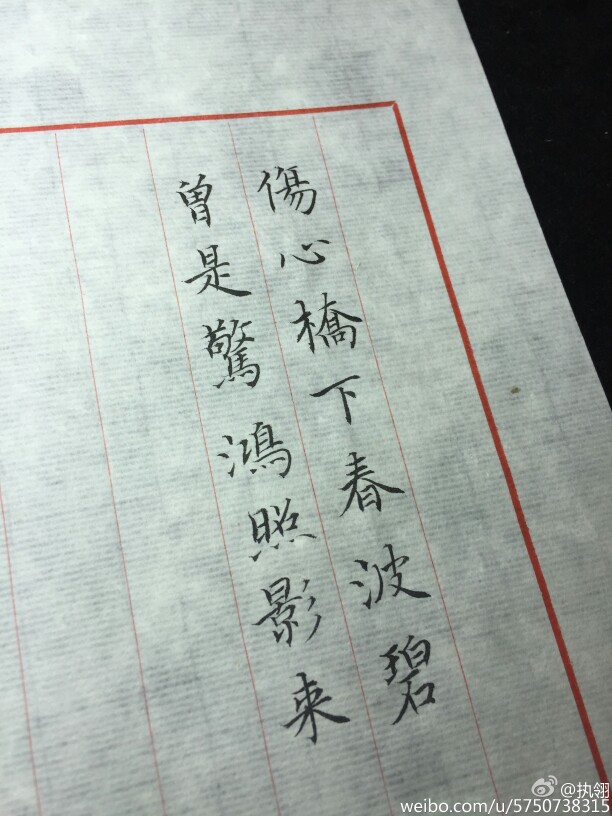 傷心橋下春波碧
曽是驚鴻照影来
@执翎
weibo.com/u/5750738315